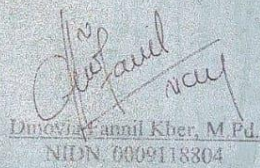 Dinovia Fannil Kher, M.Pd.
NIDN. 0009118804